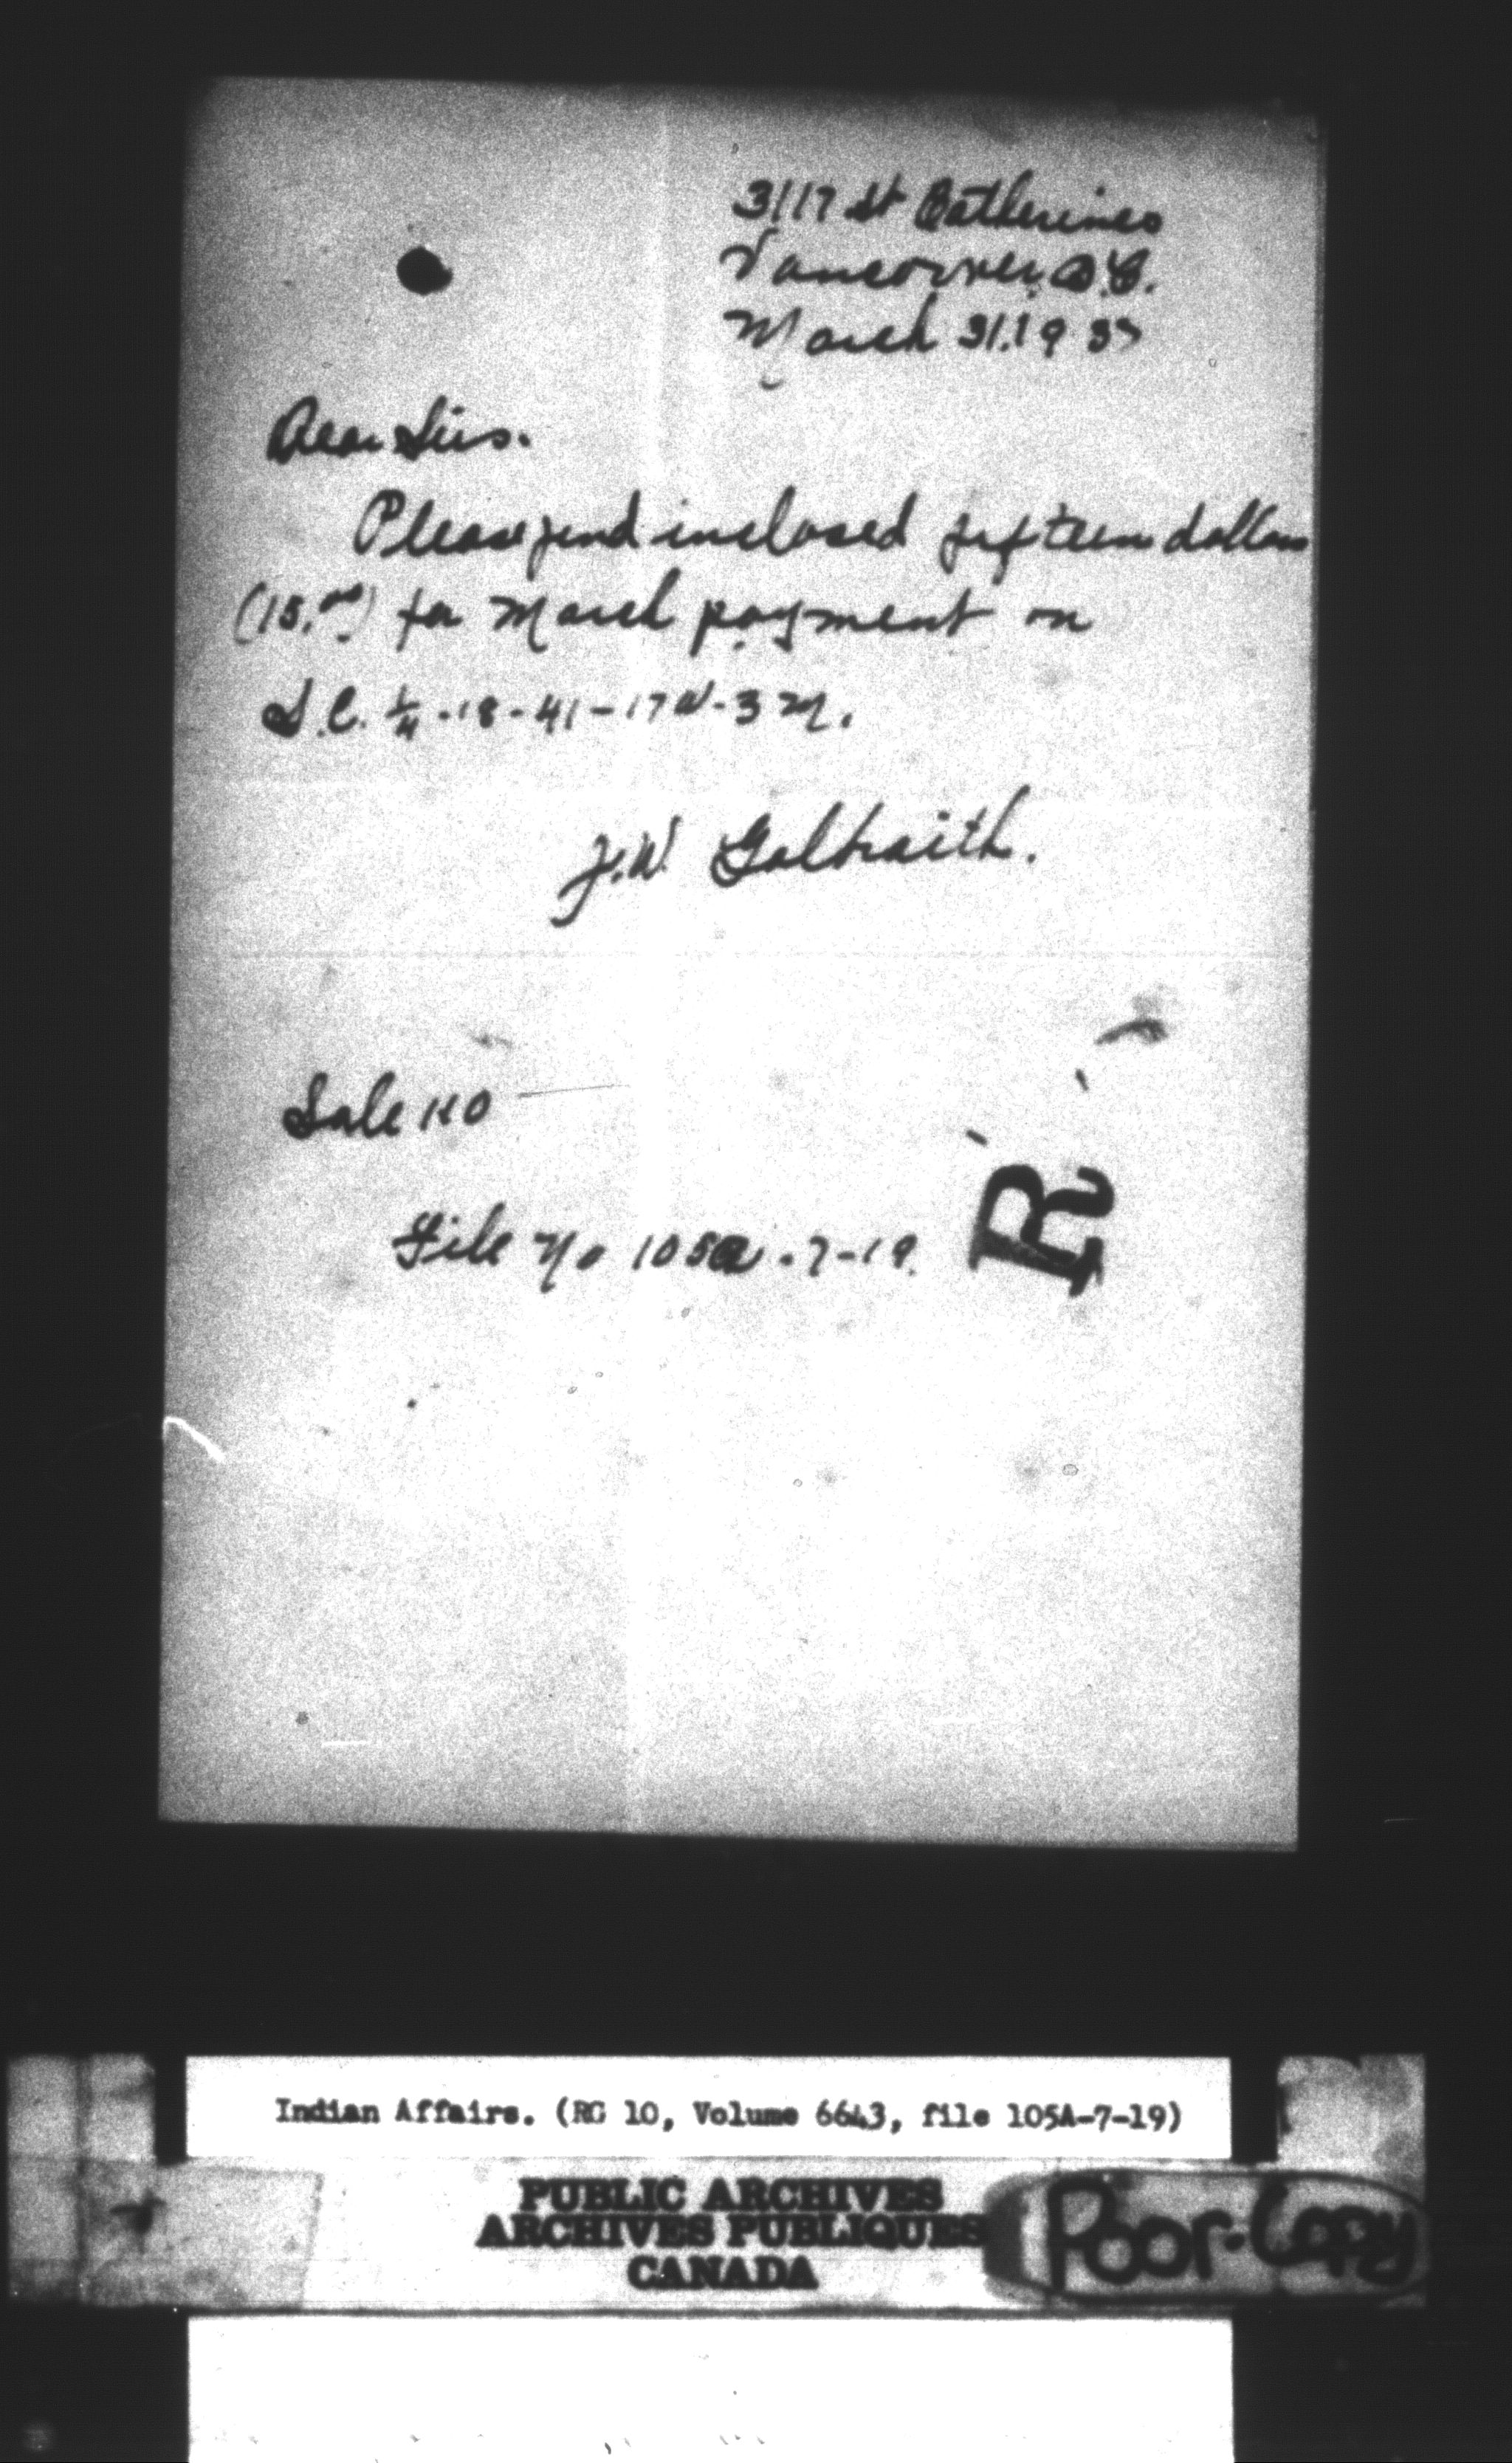 3117 St Catherines
Vancouver B.C.
March 31.19 33
Dear Sirs.
Please find inclosed fifteen dollars
(15.00) for March payment on
S.E. 1/4 - 18 - 41 - 17 W - 3 M.
J.W. Galbraith.
Sale 110
File No 105a - 7 - 19.
R
Indian Affairs. (RG 10, Volume 6643, file 105A-7-19)
PUBLIC ARCHIVES
ARCHIVES PUBLIQUES
CANADA
Poor-Copy